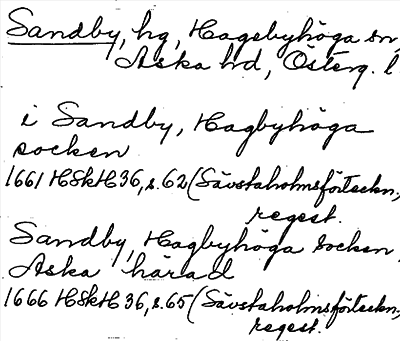 Sandby, hg, Hagebyhöga sn,
Aska hd, Österg. l.
i Sandby, Hagbyhöga
socken
1661 HSkH 36, s. 62 (Sävstaholmsförteckn.,
regest.
Sandby, Hagbyhöga socken,
Aska härad
1666 HSkH 36, s. 65 (Sävstaholmsförteckn.,
regest.